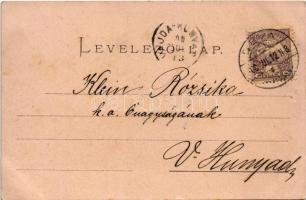 LEVELEZŐ-LAP.
Klein Rózsika
k. a. Őnagyságának
V. Hunyad